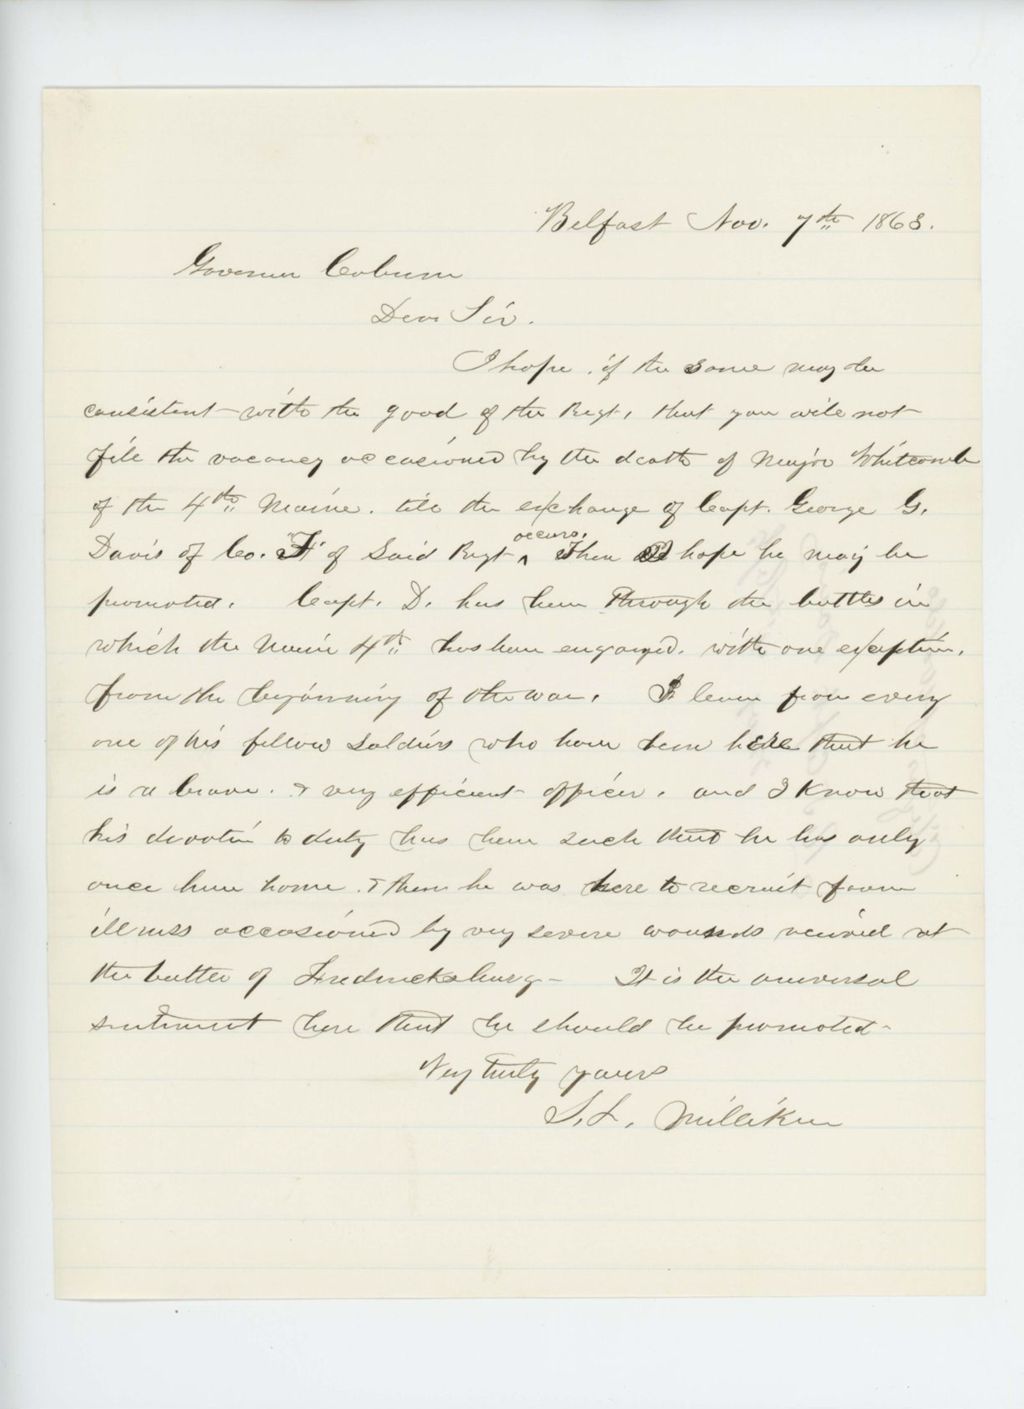 Belfast Nov. 7th 1863.
Governor Coburn
Dear Sir.
I hope, if the same may be
consistent with the good of the Regt, that you will not
fill the vacancy occasioned by the death of Major Whitcomb
of the 4th Maine. till the exchange of Capt. George G.
occurs.
Davis of Co. F of Said Regt ^ Then I hope he may be
promoted. Capt. D. has been through the battles in
which the Maine 4th has been engaged. with one exception,
from the beginning of the war. I learn from every
one of his fellow soldiers who have been here that he
is a brave. & very efficient officer. and I know that
his devotion to duty has been such that he has only
once been home. & then he was here to recruit from
illness occasioned by very severe wounds received at
the battle of Fredericksburg - It is the universal
sentiment here that he should be promoted -
Very truly yours
S. L. Milliken